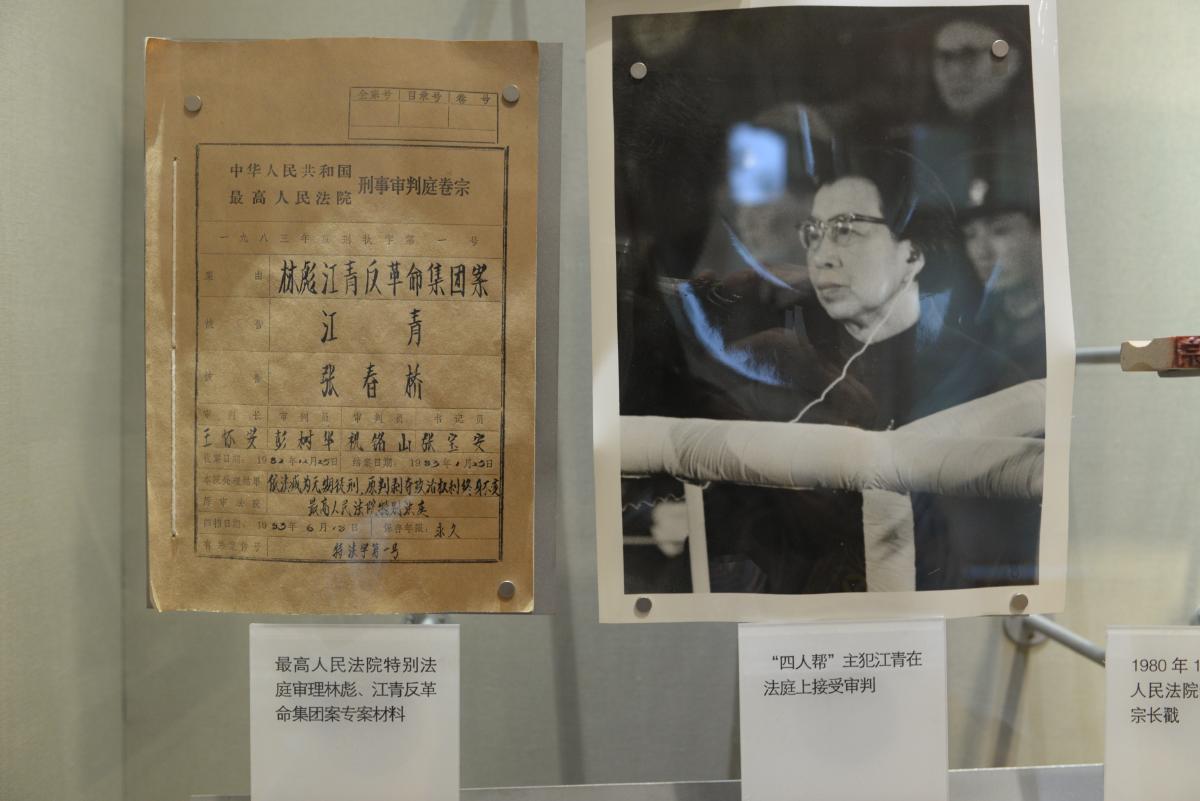 全宗号 目录号 卷号
中华人民共和国
最高人民法院
刑事审判庭卷宗
一九八三年度刑 字第一号
案由 林彪江青反革命集团案
被告 江青
被告 张春桥
审判长 审判员 审判员 书记员
王怀安 彭树华 张宝安
收案日期: 1982年12月25日 结案日期: 1983年1月25日
本院处理结果 依法减为无期徒刑,原判剥夺政治权利终身不变
原审法院 最高人民法院特别法庭
归档日期: 1983年6月13日 保存年限: 永久
特法字第一号
最高人民法院特别法
庭审理林彪、江青反革
命集团案专案材料
“四人帮”主犯江青在
法庭上接受审判
1980 年 1
人民法院
宗长戳